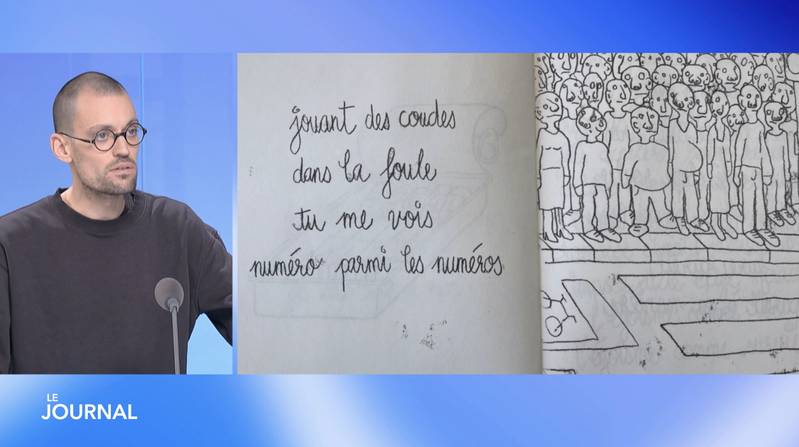 jouant des coudes
dans la foule
tu me vois
numéro parmi les numéros
LE
JOURNAL